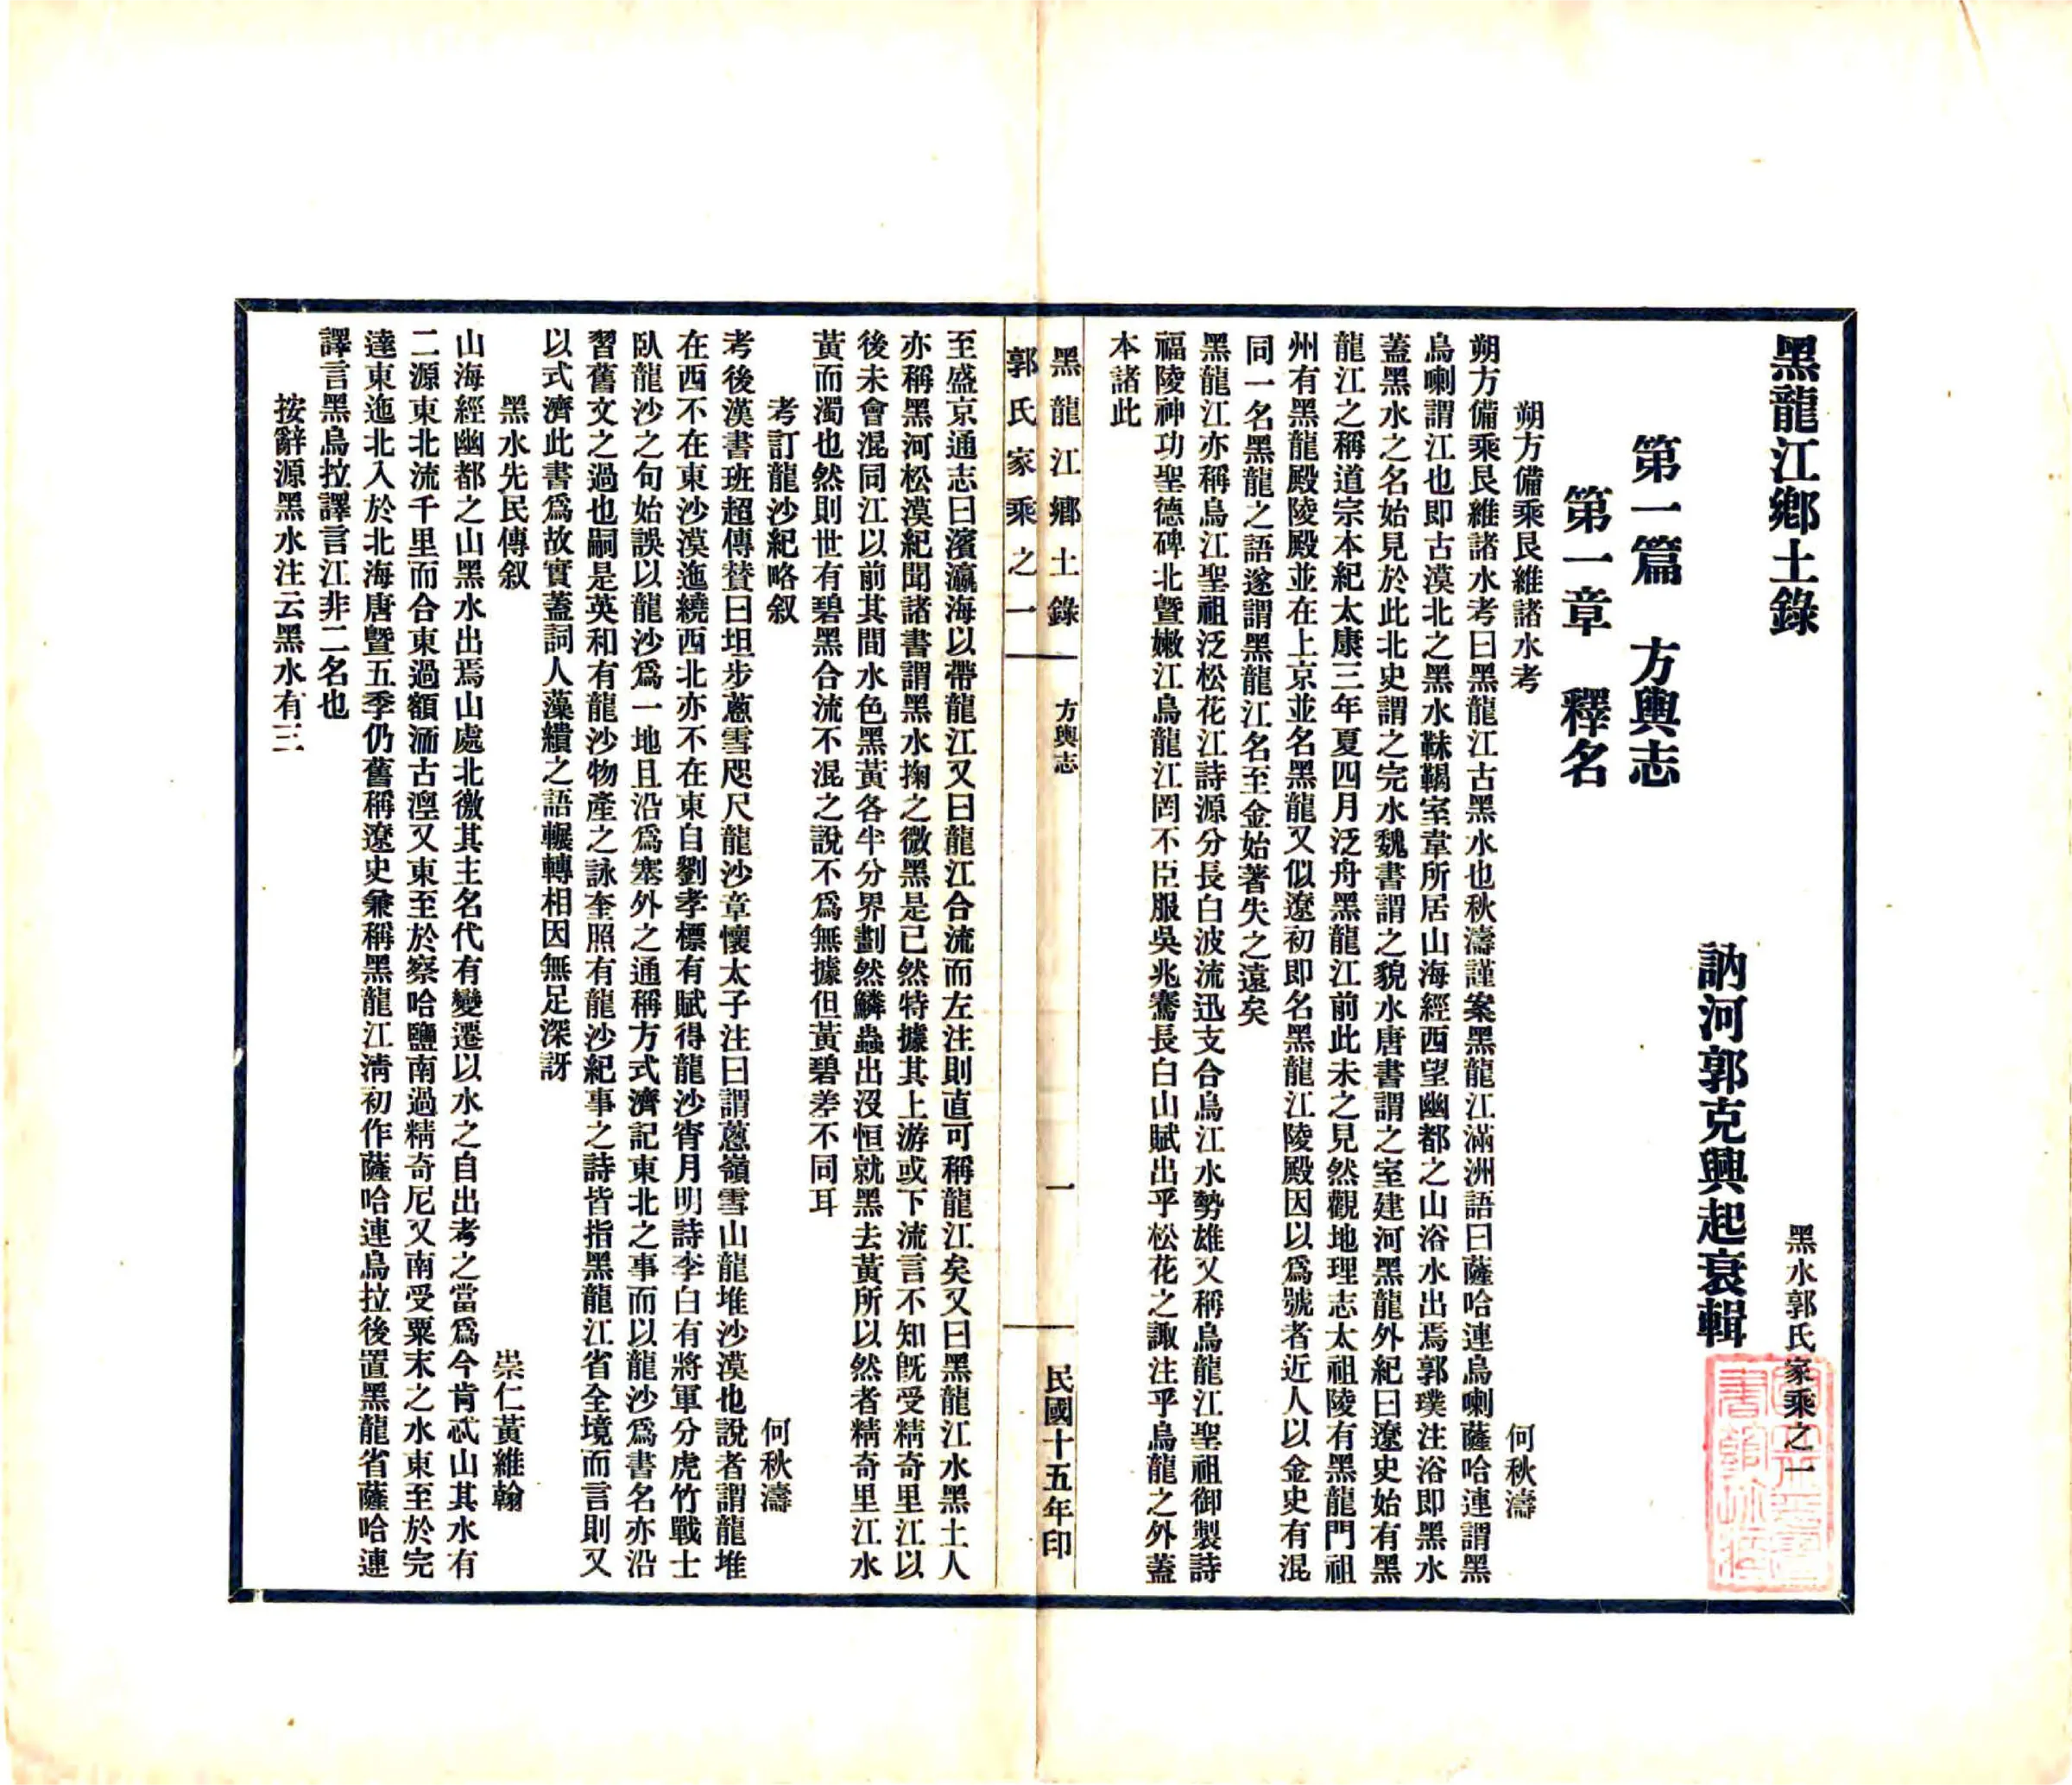 黑龍江鄉土錄
黑水郭氏家乘之一
訥河郭克興起衰輯
第一篇　方輿志
第一章　釋名
朔方備乘艮維諸水考
何秋濤
朔方備乘艮維諸水考曰黑龍江古黑水也秋濤謹案黑龍江滿洲語曰薩哈連烏喇薩哈連謂黑
烏喇謂江也即古漠北之黑水靺鞨室韋所居山海經西望幽都之山浴水出焉郭璞注浴即黑水
蓋黑水之名始見於此北史謂之完水魏書謂之貌水唐書謂之室建河黑龍外紀曰遼史始有黑
龍江之稱道宗本紀太康三年夏四月泛舟黑龍江前此未之見然觀地理志太祖陵有黑龍門祖
州有黑龍殿陵殿並在上京並名黑龍又似遼初即名黑龍江陵殿因以爲號者近人以金史有混
同一名黑龍之語遂謂黑龍江名至金始著失之遠矣
黑龍江亦稱烏江聖祖泛松花江詩源分長白波流迅支合烏江水勢雄又稱烏龍江聖祖御製詩
福陵神功聖德碑北暨嫩江烏龍江罔不臣服吳兆騫長白山賦出乎松花之諏注乎烏龍之外蓋
本諸此
黑龍江鄉土錄
方輿志
一
民國十五年印
郭氏家乘之一
至盛京通志曰濱瀛海以帶龍江又曰龍江合流而左注則直可稱龍江矣又曰黑龍江水黑土人
亦稱黑河松漠紀聞諸書謂黑水掬之微黑是已然特據其上游或下流言不知既受精奇里江以
後未會混同江以前其間水色黑黃各半分界劃然鱗蟲出沒恒就黑去黃所以然者精奇里江水
黃而濁也然則世有碧黑合流不混之說不爲無據但黃碧差不同耳
考訂龍沙紀略叙
何秋濤
考後漢書班超傳贊曰坦步蔥雪咫尺龍沙章懷太子注曰謂蔥嶺雪山龍堆沙漠也說者謂龍堆
在西不在東沙漠迤繞西北亦不在東自劉孝標有賦得龍沙宵月明詩李白有將軍分虎竹戰士
臥龍沙之句始誤以龍沙爲一地且沿爲塞外之通稱方式濟記東北之事而以龍沙爲書名亦沿
習舊文之過也嗣是英和有龍沙物產之詠奎照有龍沙紀事之詩皆指黑龍江省全境而言則又
以式濟此書爲故實蓋詞人藻繢之語輾轉相因無足深訝
黑水先民傳叙
崇仁黃維翰
山海經幽都之山黑水出焉山處北徼其主名代有變遷以水之自出考之當爲今肯忒山其水有
二源東北流千里而合東過額洏古湼又東至於察哈鹽南過精奇尼又南受粟末之水東至於完
達東迤北入於北海唐暨五季仍舊稱遼史兼稱黑龍江淸初作薩哈連烏拉後置黑龍省薩哈連
譯言黑烏拉譯言江非二名也
按辭源黑水注云黑水有三